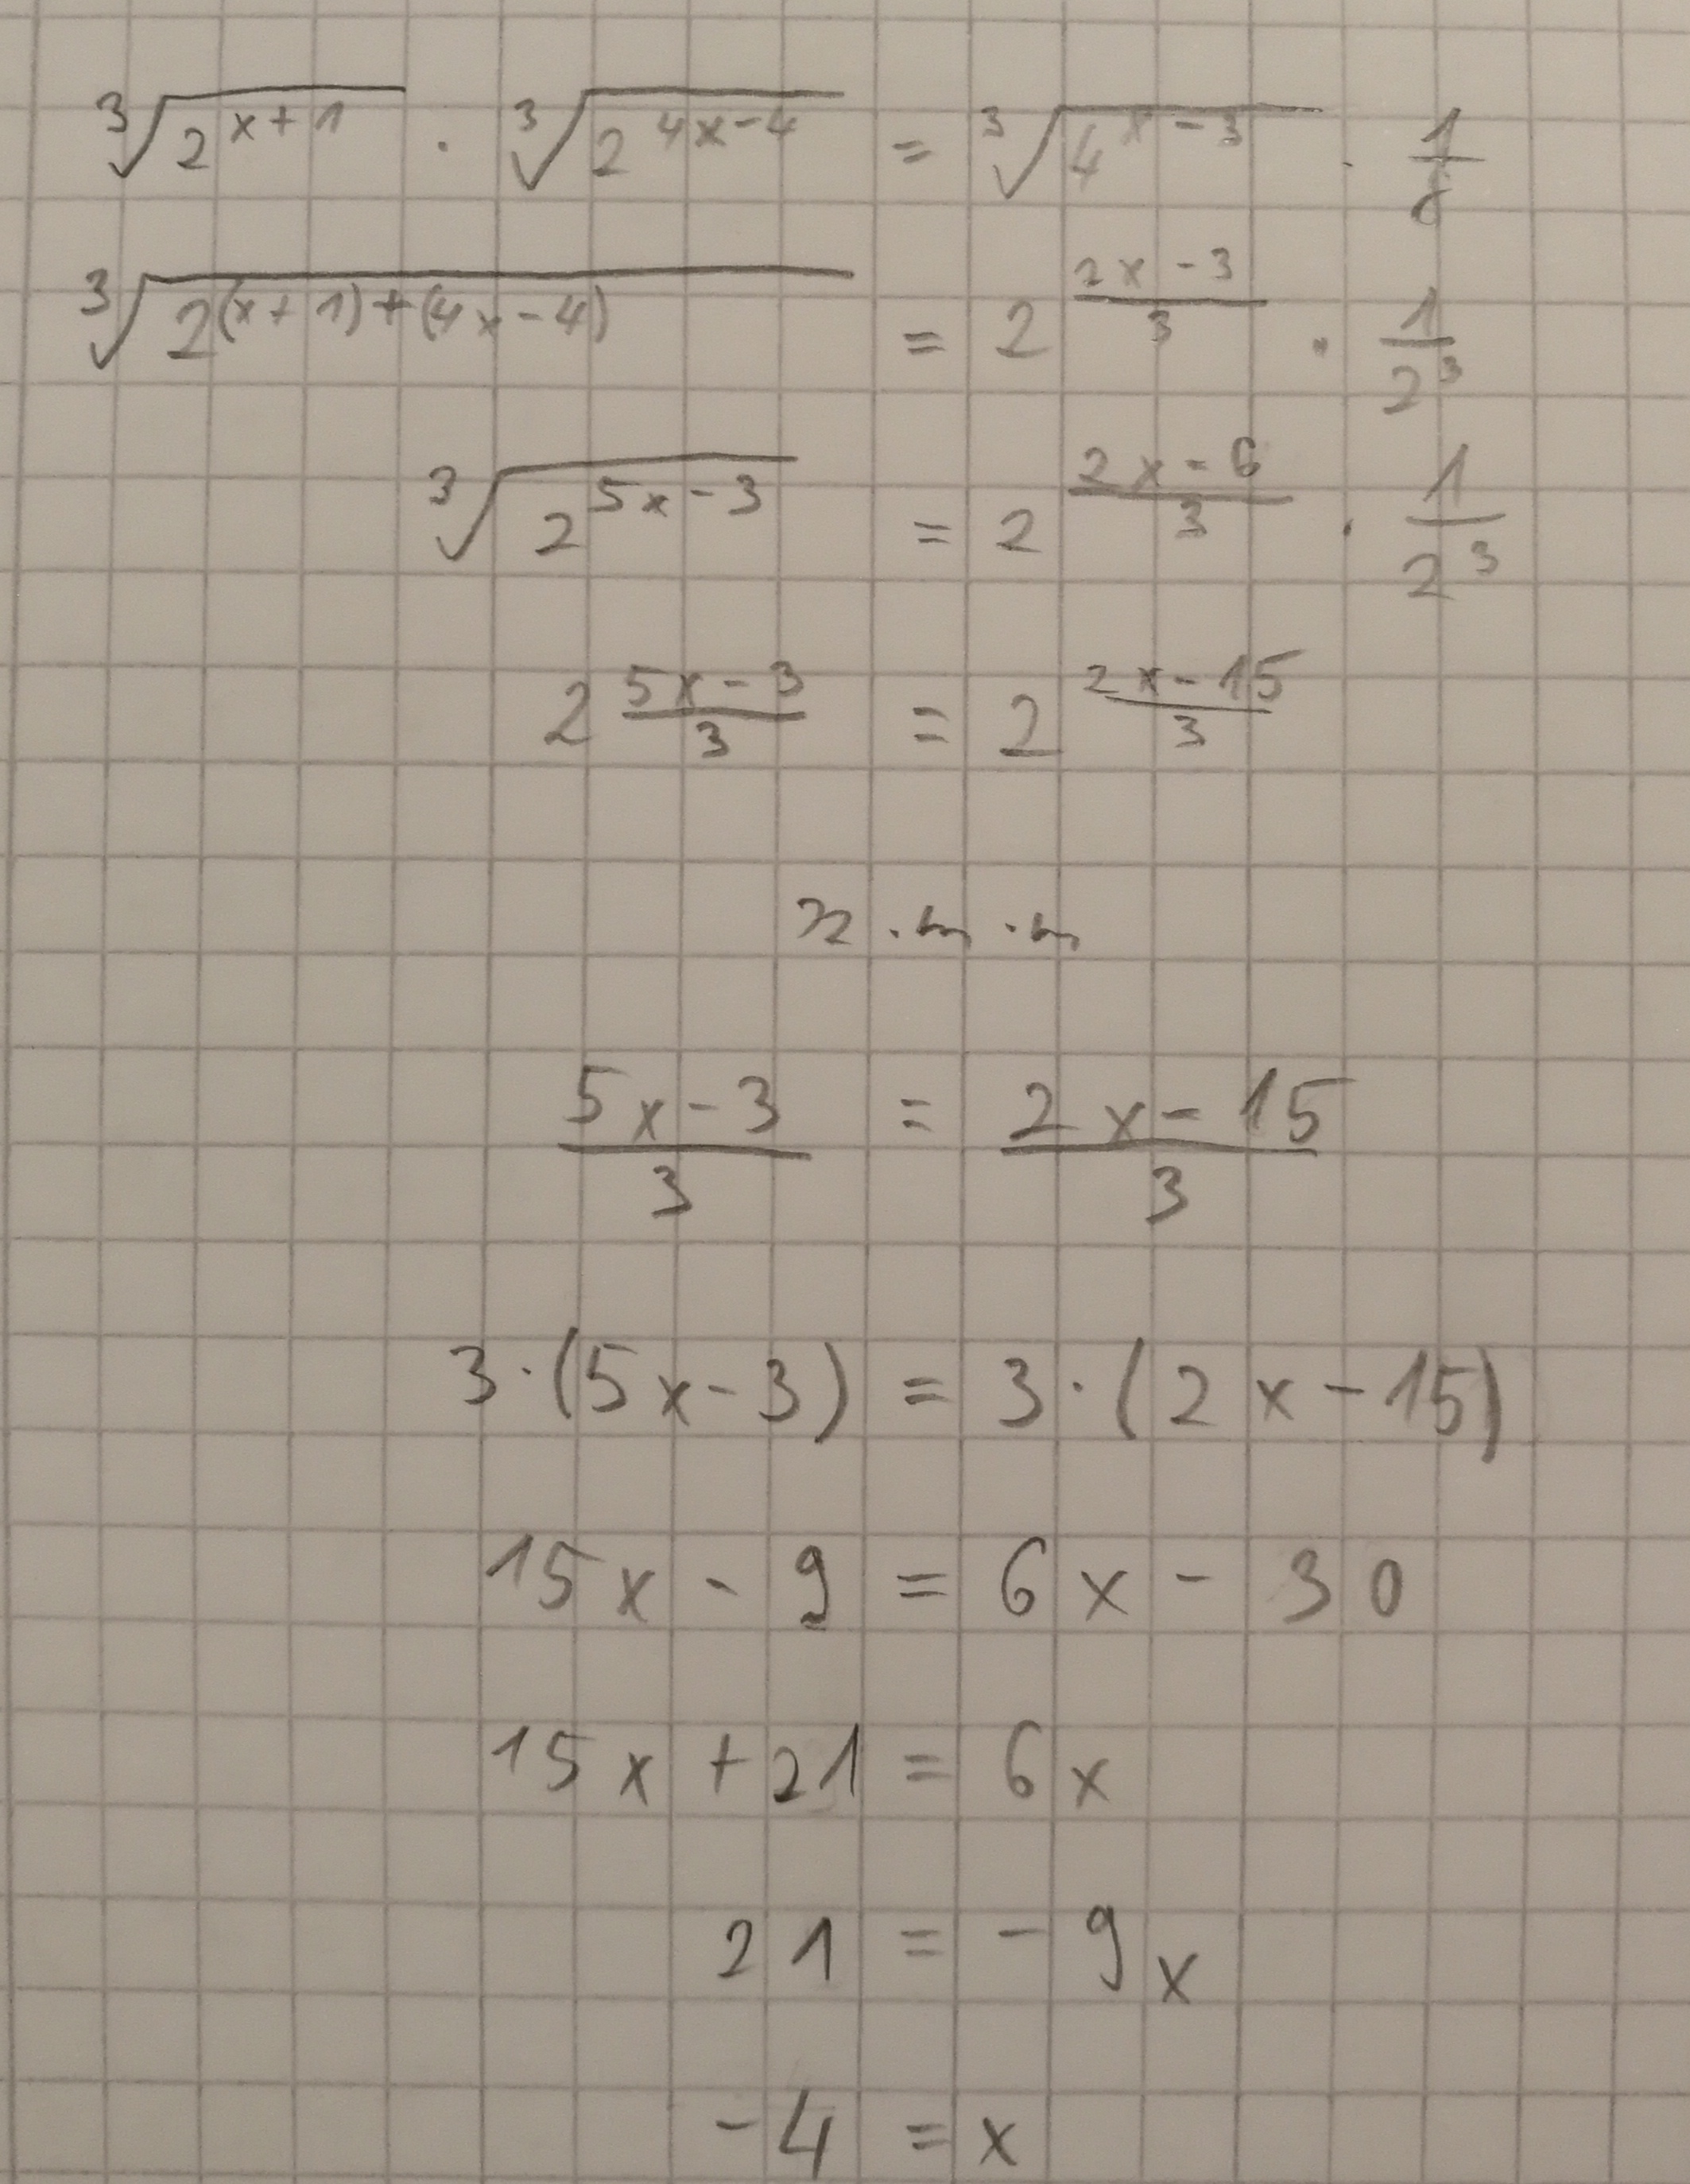 ∛(2^(x+1)) · ∛(2^(4x-4)) = ∛(4^(x-3)) · 1/8
∛(2^((x+1)+(4x-4))) = 2^((2x-3)/3) · 1/2^3
∛(2^(5x-3)) = 2^((2x-6)/3) · 1/2^3
2^((5x-3)/3) = 2^((2x-15)/3)
(5x-3)/3 = (2x-15)/3
3·(5x-3) = 3·(2x-15)
15x - 9 = 6x - 30
15x + 21 = 6x
21 = -9x
-4 = x